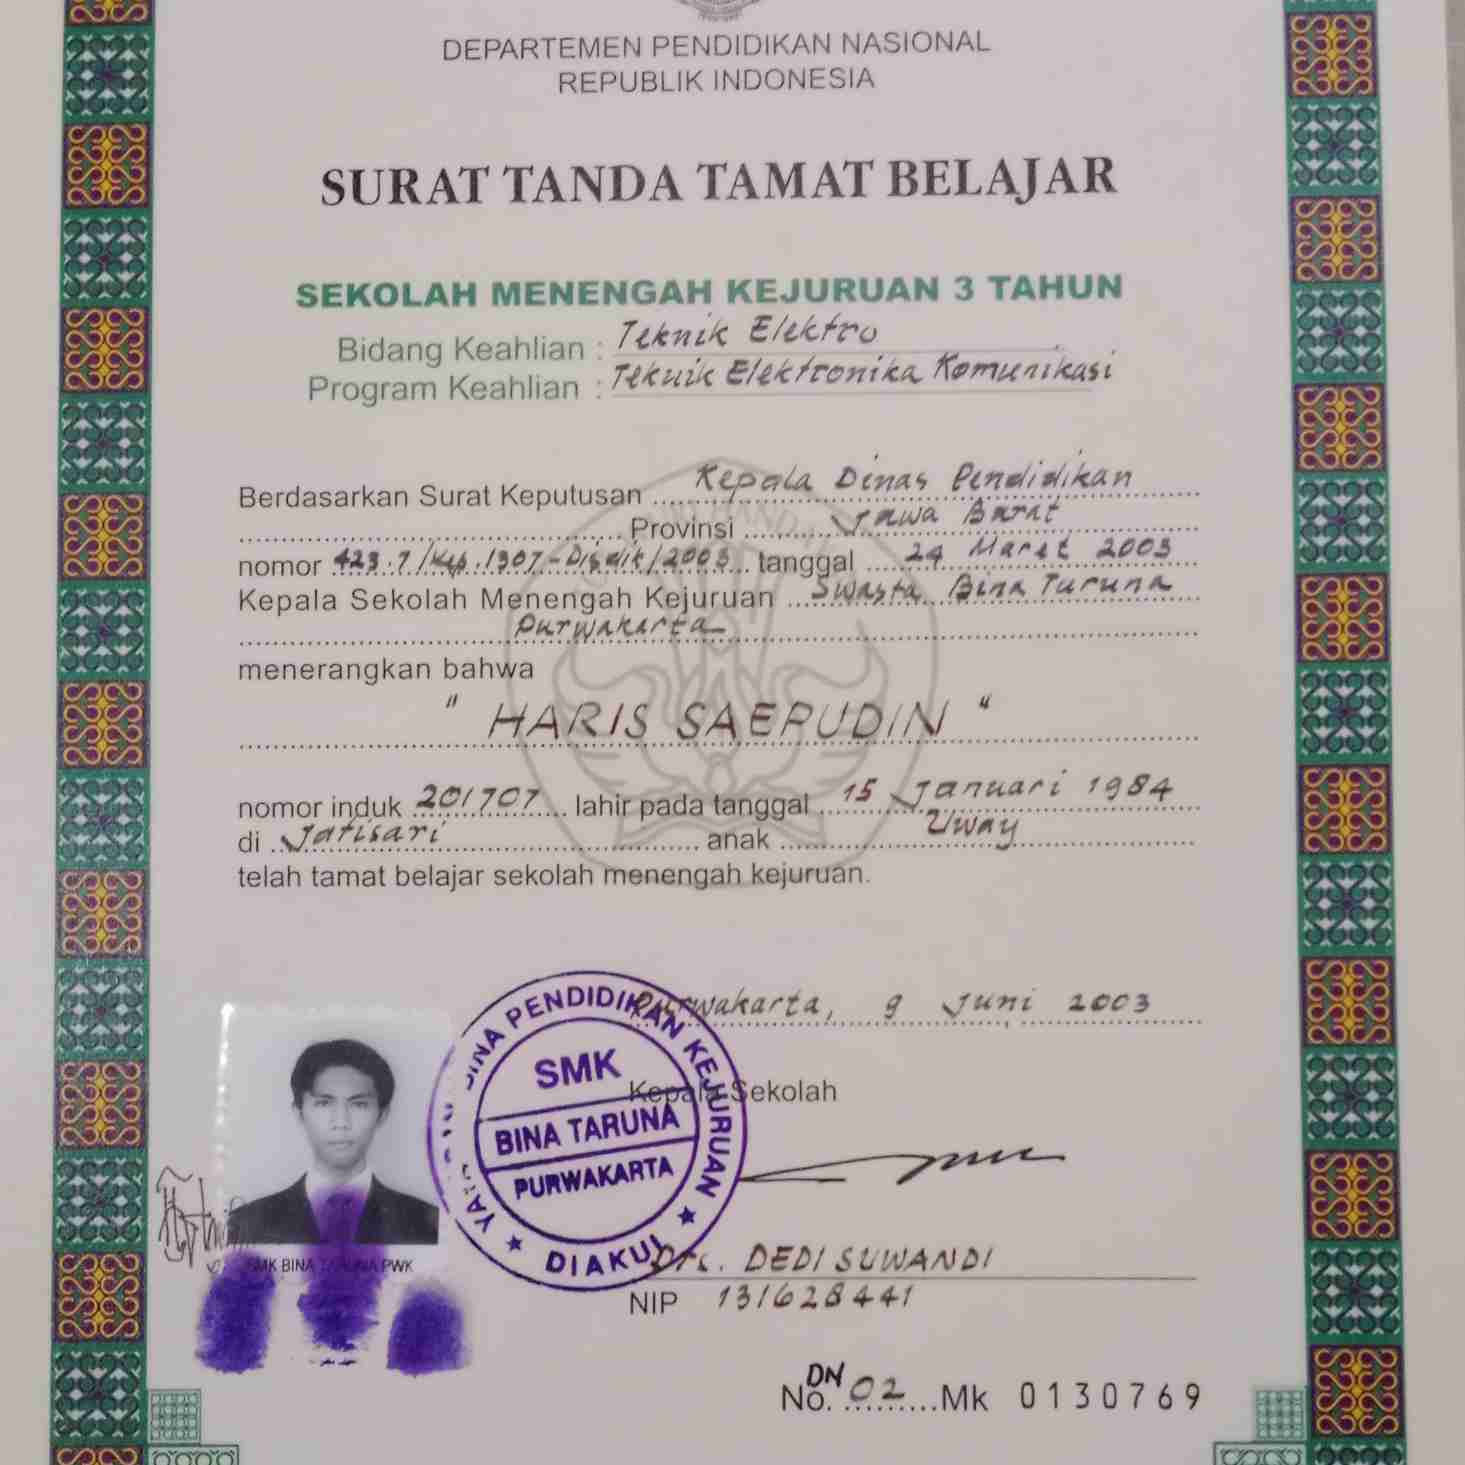 DEPARTEMEN PENDIDIKAN NASIONAL
REPUBLIK INDONESIA
SURAT TANDA TAMAT BELAJAR
SEKOLAH MENENGAH KEJURUAN 3 TAHUN
Bidang Keahlian : Teknik Elektro
Program Keahlian : Teknik Elektronika Komunikasi
Berdasarkan Surat Keputusan Kepala Dinas Pendidikan
Provinsi Jawa Barat
nomor 423.7/Kep.1307-Disdik/2003 tanggal 24 Maret 2003
Kepala Sekolah Menengah Kejuruan Swasta Bina Taruna
Purwakarta
menerangkan bahwa
" HARIS SAEPUDIN "
nomor induk 201707 lahir pada tanggal 15 Januari 1984
di Jatisari anak Uway
telah tamat belajar sekolah menengah kejuruan.
Purwakarta, 9 Juni 2003
Kepala Sekolah
BINA PENDIDIKAN KEJURUAN
SMK
BINA TARUNA
PURWAKARTA
★ DIAKUI ★
SMK BINA TARUNA PWK
Drs. DEDI SUWANDI
NIP 131628441
DN
No. 02 Mk 0130769